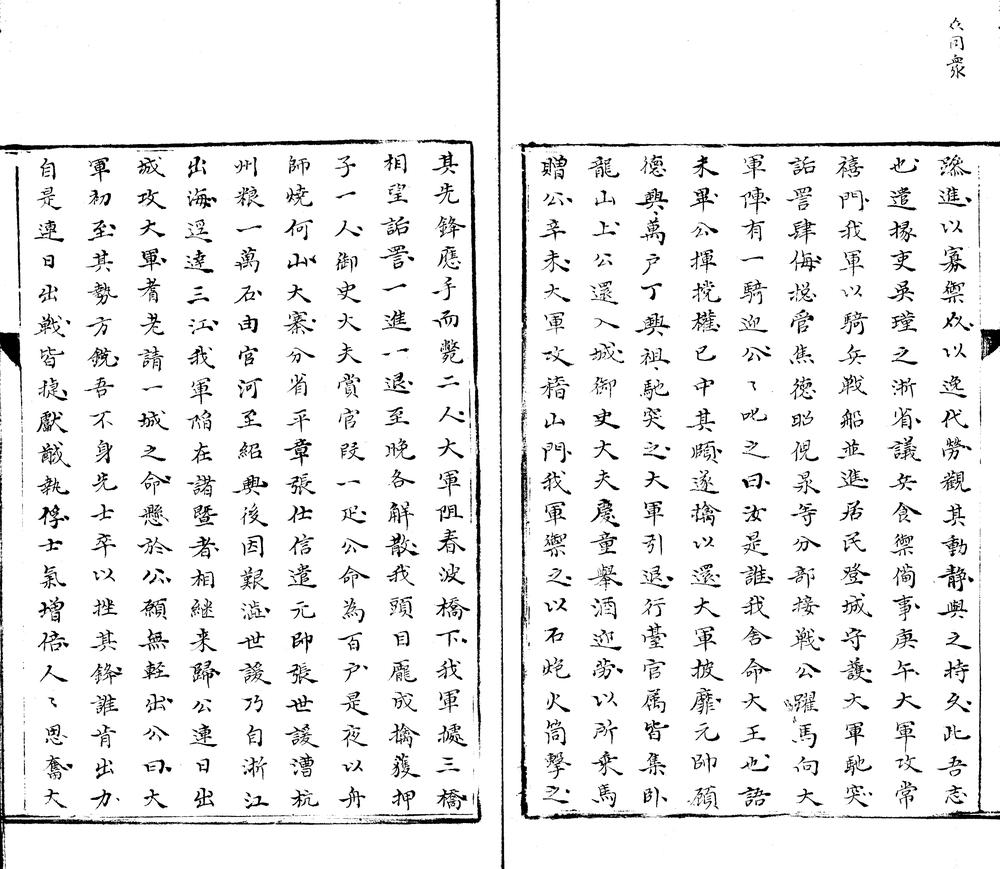 仌同衆
蹤進以寡禦众以逸代勞觀其動靜與之持久此吾志
也遣掾吏吳瑾之浙省議兵食禦備事庚午大軍攻常
禧門我軍以騎兵戰船並進居民登城守護大軍馳突
詬詈肆侮捴管焦德昭倪泉等分部接戰公躍馬向大
軍陣有一騎迎公〻叱之曰汝是誰我舍命大王也語
未畢公揮撓槍已中其頤遂擒以還大軍披靡元帥碩
德興萬戶丁興祖馳突之大軍引退行臺官属皆集卧
龍山上公還入城御史大夫慶童舉酒迎勞以所乘馬
贈公辛未大軍攻稽山門我軍禦之以石炮火筒擊之
其先鋒應手而斃二人大軍阻春波橋下我軍據三橋
相望詬詈一進一退至晚各解散我頭目龐成擒獲押
子一人御史大夫賞官段一疋公命為百户是夜以舟
師燒何山大寨分省平章張仕信遣元帥張世諼漕杭
州粮一萬石由官河至紹興後因艱澁世諼乃自浙江
出海逕達三江我軍陷在諸暨者相継来歸公連日出
城攻大軍耆老請一城之命懸於公願無輕出公曰大
軍初至其勢方銳吾不身先士卒以挫其鋒誰肯出力
自是連日出戰皆捷獻馘執俘士氣增倍人〻思奮大